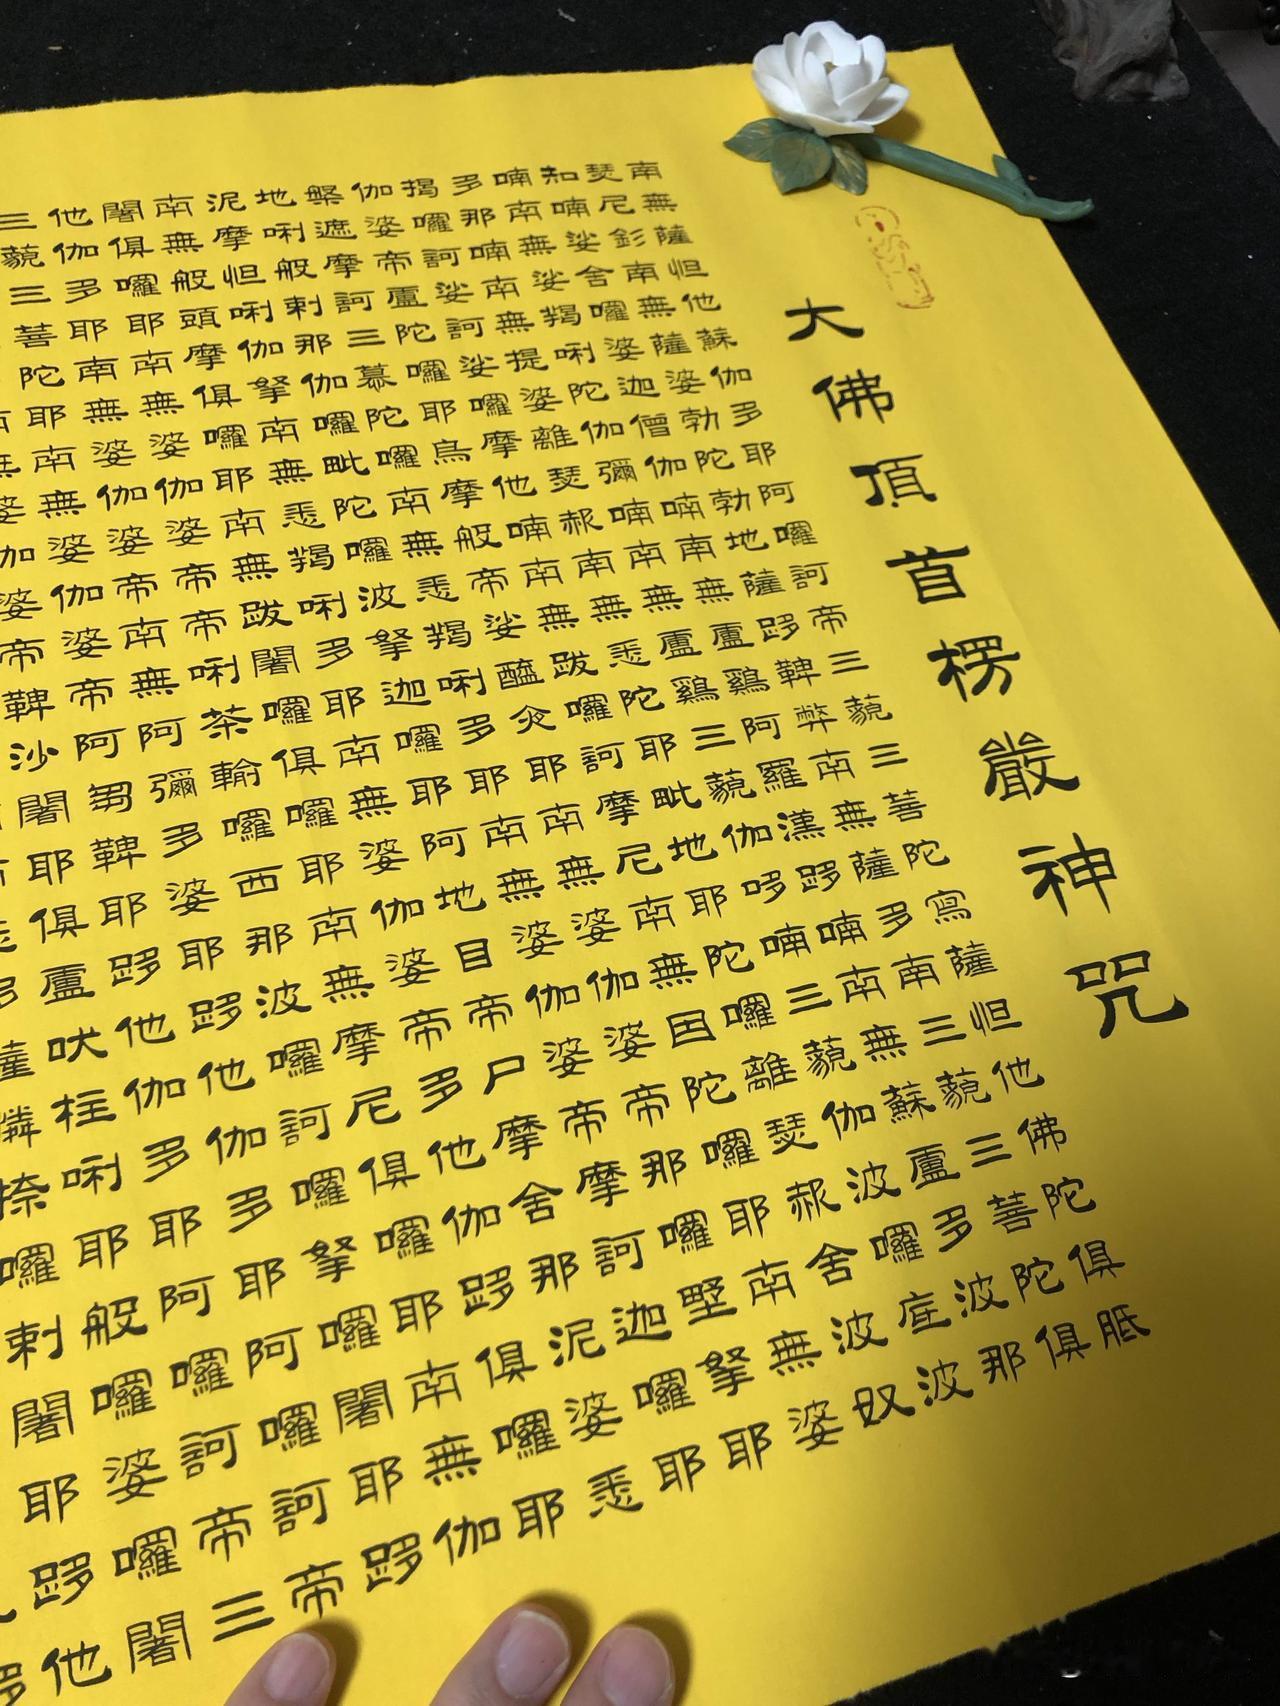 大佛頂首楞嚴神咒
南無薩怛他蘇伽多耶阿囉訶帝三藐三菩陀寫薩怛他佛陀俱胝
瑟尼釤南無薩婆勃陀勃地薩跢鞞弊南無薩多南三藐三菩陀俱
知喃娑舍囉婆迦僧伽喃南無盧雞阿羅漢跢喃南無蘇盧多波那
喃南無娑羯唎陀伽彌喃南無盧雞三藐伽哆喃三藐伽波囉底波
多那喃南無提婆離瑟赧南無悉陀耶毗地耶陀囉離瑟赧舍波奴
揭囉訶娑訶娑囉摩他喃南無跋囉訶摩尼南無因陀囉耶南無婆
伽婆帝盧陀囉耶烏摩般帝娑醯夜耶南無婆伽婆帝那囉墅拏耶
槃遮摩訶三慕陀囉南無悉羯唎多耶南無婆伽婆帝摩訶迦囉耶
地唎般剌那伽囉毗陀囉波拏迦囉耶阿地目帝尸摩舍那泥婆悉
泥摩怛唎伽拏南無悉羯唎多耶南無婆伽婆帝多他伽跢俱囉耶
南無般頭摩俱囉耶南無跋闍囉俱囉耶南無摩尼俱囉耶南無伽
闍俱囉耶南無婆伽婆帝帝唎茶輸囉西那波囉訶囉拏囉闍耶跢
他伽多耶南無婆伽婆帝南無阿彌多婆耶跢他伽多耶阿囉訶帝
三藐三菩陀耶南無婆伽婆帝阿芻鞞耶跢他伽多耶阿囉訶帝三
南無婆伽婆帝鞞沙闍耶俱盧吠柱唎耶般囉婆囉闍
薩憐捺囉剌闍耶跢他